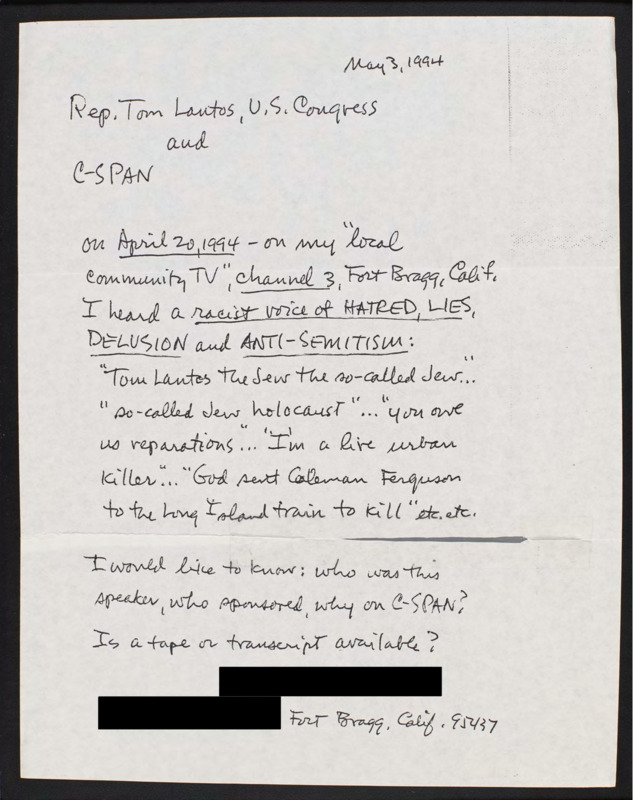 May 3, 1994
Rep. Tom Lantos, U.S. Congress
and
C-SPAN
on April 20, 1994 – on my "local
community TV", channel 3, Fort Bragg, Calif.
I heard a racist voice of HATRED, LIES,
DELUSION and ANTI-SEMITISM:
"Tom Lantos the Jew the so-called Jew..."
"so-called Jew holocaust"..."you owe
us reparations"..."I'm a live urban
killer"..."God sent Coleman Ferguson
to the Long Island train to kill" etc. etc.
I would like to know: who was this
speaker, who sponsored, why on C-SPAN?
Is a tape or transcript available?
Fort Bragg, Calif. 95437